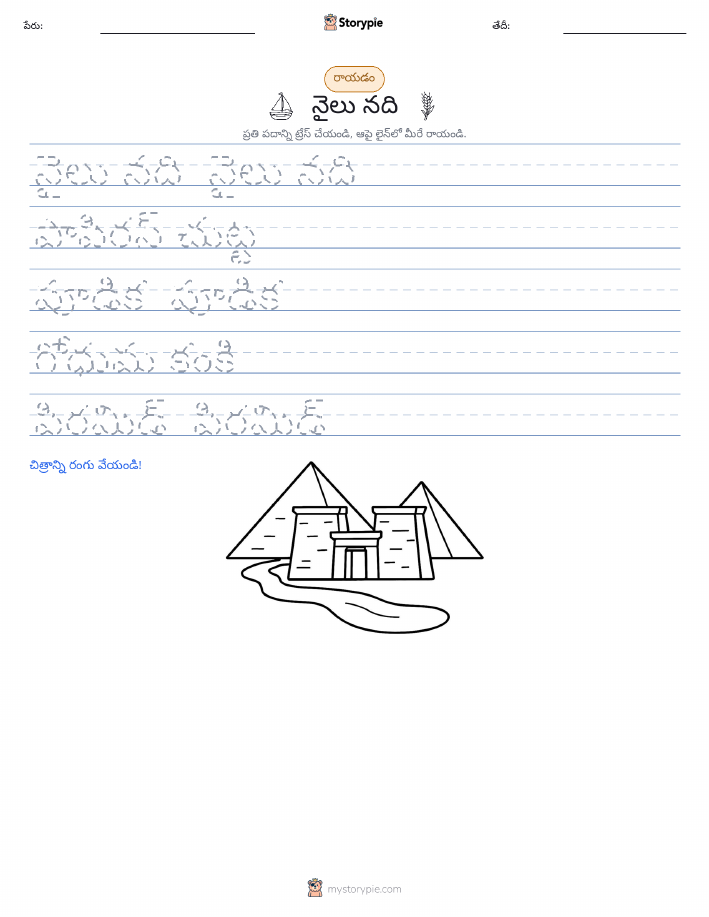 పేరు:
Storypie
తేదీ:
రాయడం
నైలు నది
ప్రతి పదాన్ని ట్రేస్ చేయండి, ఆపై లైన్‌లో మీరే రాయండి.
నైలు నది నైలు నది
పాపిరస్ చుట్ట
పూడిక పూడిక
గోధుమ కంకి
పిరమిడ్ పిరమిడ్
చిత్రాన్ని రంగు వేయండి!
mystorypie.com